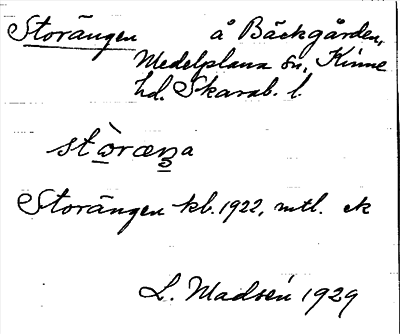 Storängen å Bäckgården,
Medelplana sn, Kinne
hd. Skarab. l.
stòræŋa
Storängen kb. 1922, mtl. ek
L. Madsén 1929